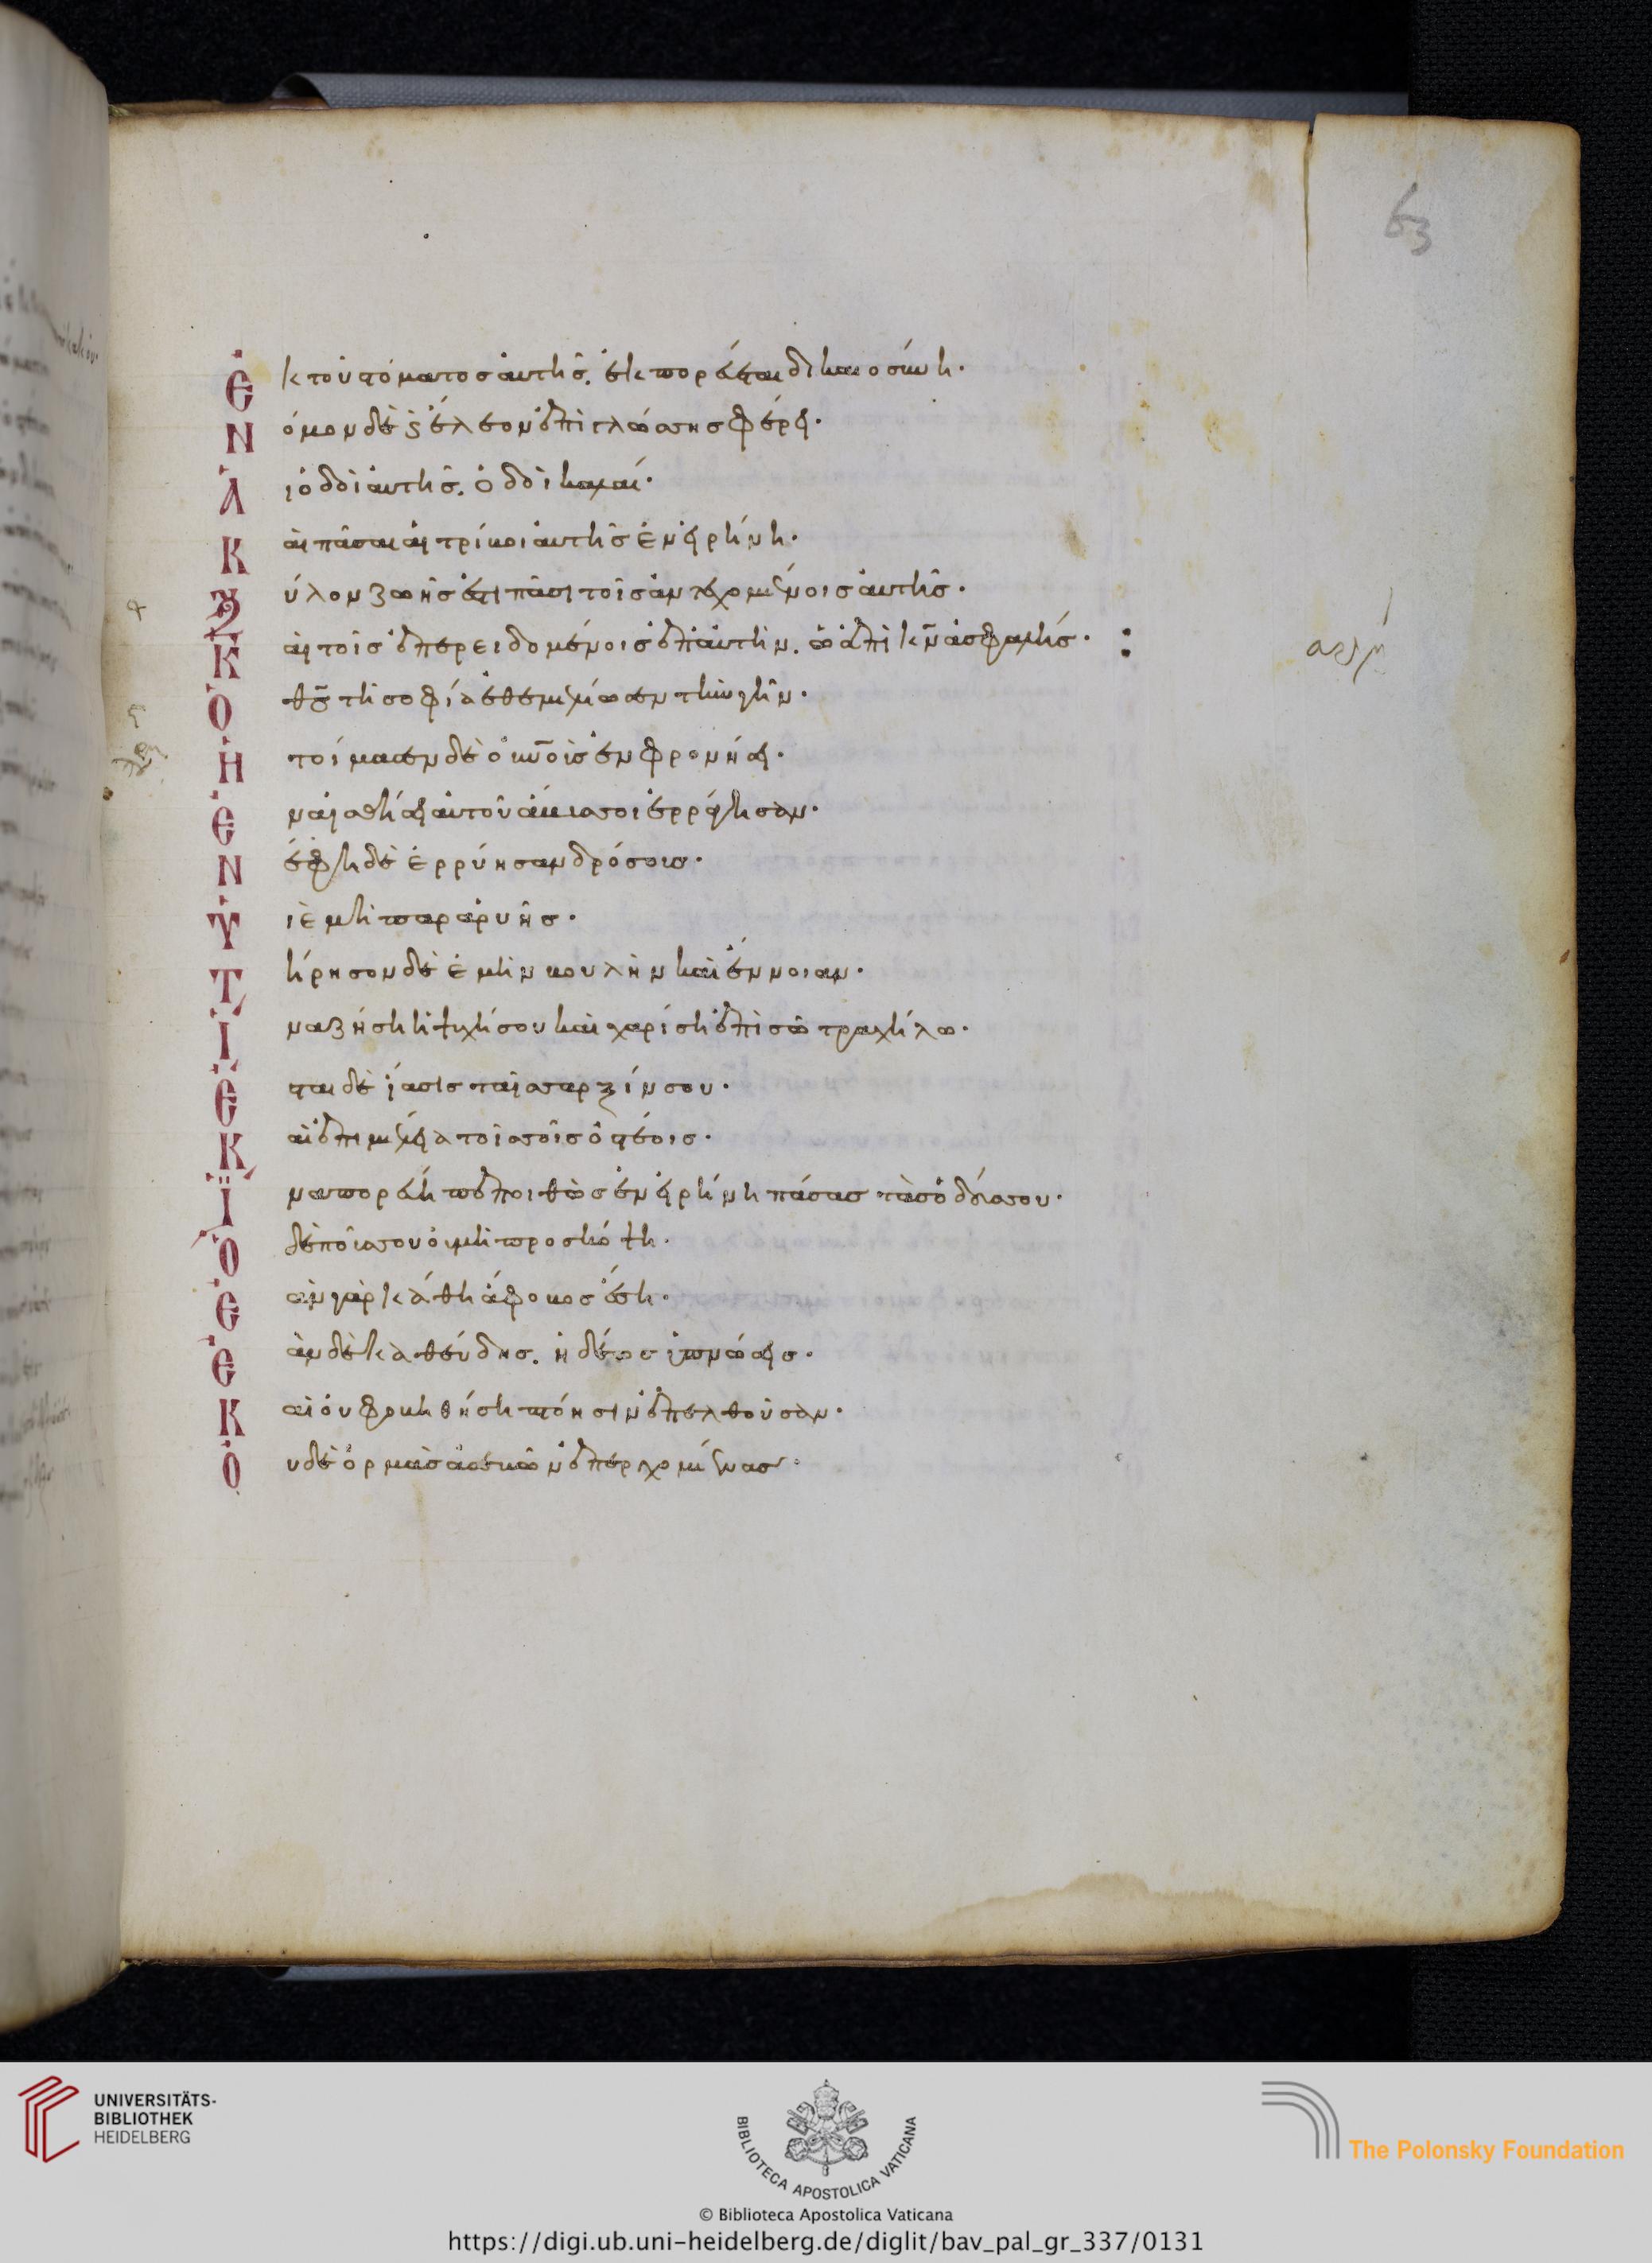 63
Ἐκ τοῦ στόματος αὐτῆς. ἐκπορεύεται δικαιοσύνη·
Νόμον δὲ ϛ ἔλεον ἐπὶ γλώσσης φέρει·
Αἱ ὁδοὶ αὐτῆς. ὁδοὶ καλαί·
Καὶ πᾶσαι αἱ τρίβοι αὐτῆς ἐν εἰρήνη·
Ξύλον ζωῆς ἐστι πᾶσι τοῖς ἀντεχομένοις αὐτῆς·
Καὶ τοῖς ἐπερειδομένοις ἐπ' αὐτὴν. ὡς ἐπὶ κν̄ ἀσφαλής· :
Ὁ θς̄ τῆ σοφία ἐθεμελίωσεν τὴν γῆν·
Ἡτοίμασεν δὲ οὐνοὺς ἐν φρονήσει·
Ἐν αἰσθήσει αὐτοῦ ἄβυσσοι ἐρράγησαν·
Νέφη δὲ ἐρρύησαν δρόσους·
Υἱὲ μὴ παραρυῆς·
Τήρησον δὲ ἐμὴν βουλὴν καὶ ἔννοιαν·
Ἵνα ζήση ἡ ψυχή σου καὶ χάρις ἦ ἐπὶ σῶ τραχήλω·
Ἔσται δὲ ἴασις ταῖς σαρξίν σου·
Καὶ ἐπιμέλεια τοῖς σοῖς ὀστέοις·
Ἵνα πορεύη πεποιθὼς ἐν εἰρήνη πάσας τὰς ὁδούς σου·
Ὁ δὲ ποῦς σου οὐ μὴ προσκόψη·
Ἐὰν γὰρ κάθη ἄφοβος ἔση·
Ἐὰν δὲ καθεύδης. ἡδέως ὑπνώσεις·
Καὶ οὐ φοβηθήση πτόησιν ἐπελθοῦσαν·
Οὐδὲ ὁρμὰς ἀσεβῶν ἐπερχομένας·
UNIVERSITÄTS-
BIBLIOTHEK
HEIDELBERG
BIBLIOTECA APOSTOLICA VATICANA
The Polonsky Foundation
© Biblioteca Apostolica Vaticana
https://digi.ub.uni-heidelberg.de/diglit/bav_pal_gr_337/0131